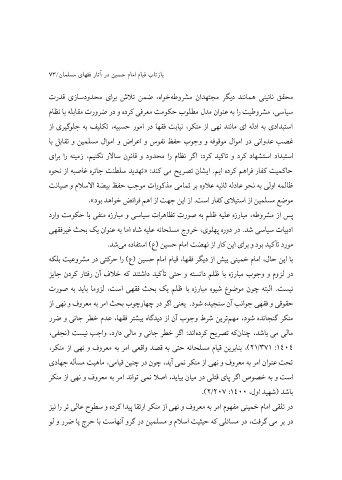 بازتاب قیام امام حسین در آثار فقهای مسلمان/۷۳
محقق نائینی همانند دیگر مجتهدان مشروطه‌خواه، ضمن تلاش برای محدودسازی قدرت
سیاسی، مشروطیت را به عنوان مدل مطلوب حکومت معرفی کرده و در ضرورت مقابله با نظام
استبدادی به ادله ای مانند نهی از منکر، نیابت فقها در امور حسبیه، تکلیف به جلوگیری از
غصب عدوانی در اموال موقوفه و وجوب حفظ نفوس و اعراض و اموال مسلمین و تقابل با
استبداد استشهاد کرد و تاکید کرد: اگر نظام را محدود و قانون سالار نکنیم، زمینه را برای
حاکمیت کفار فراهم کرده ایم. ایشان تصریح می کند: «تهدید سلطنت جائره غاصبه از نحوه
ظالمه اولی به نحو عادله ثانیه علاوه بر تمامی مذکورات موجب حفظ بیضة الاسلام و صیانت
موضع مسلمین از استیلای کفار است. از این جهت از اهم فرائض خواهد بود».
پس از مشروطه، مبارزه علیه ظلم به صورت تظاهرات سیاسی و مبارزه منفی با حکومت وارد
ادبیات سیاسی شد. در دوره پهلوی، خروج مسلحانه علیه شاه اما به عنوان یک بحث غیرفقهی
مورد تأکید بود و برای این کار از نهضت امام حسین (ع) استفاده می‌شد.
با این حال، امام خمینی بیش از دیگر فقها، قیام امام حسین (ع) را حرکتی در مشروعیت بلکه
در لزوم و وجوب مبارزه با ظلم دانسته و حتی تأکید داشتند که خلاف آن رفتار کردن جایز
نیست. البته چون موضوع شیوه مبارزه با ظلم یک بحث فقهی است، لزوما باید به صورت
حقوقی و فقهی جوانب آن سنجیده شود. یعنی اگر در چهارچوب بحث امر به معروف و نهی از
منکر گنجانده شود، مهم‌ترین شرط وجوب آن از دیدگاه بیشتر فقها، عدم خطر جانی و ضرر
مالی می باشد، چنان‌که تصریح کرده‌اند: اگر خطر جانی و مالی دارد، واجب نیست (نجفی،
۱۴۰۴: ۲۱/۳۷۱). بنابرین قیام مسلحانه حتی به قصد واقعی امر به معروف و نهی از منکر،
تحت عنوان امر به معروف و نهی از منکر نمی آید، چون در چنین قیامی، ماهیت مسأله جهادی
است و به خصوص اگر پای قتلی در میان بیاید، اصلا نمی تواند امر به معروف و نهی از منکر
باشد (شهید اول، ۱۴۰۰: ۲/۲۰۷).
در تلقی امام خمینی مفهوم امر به معروف و نهی از منکر ارتقا پیدا کرده و سطوح عالی تر را نیز
در بر می گرفت، در مسائلی که حیثیت اسلام و مسلمین در گرو آنهاست با حرج یا ضرر و لو